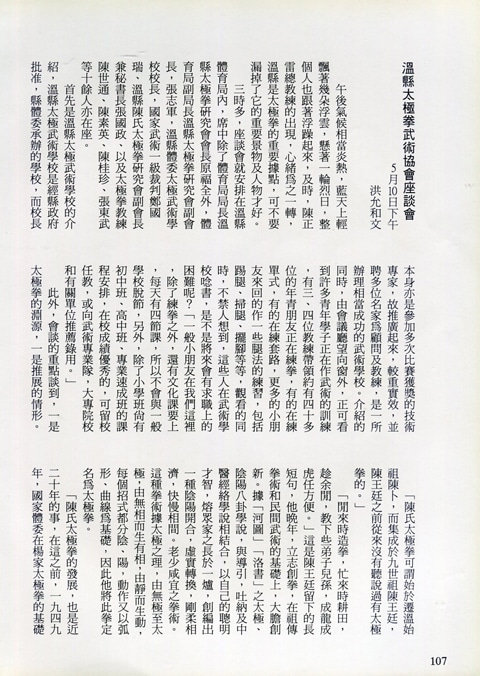 溫縣太極拳武術協會座談會
5月10日下午
洪允和文
午後氣候相當炎熱，藍天上輕
飄著幾朵浮雲，懸著一輪烈日，整
個人也跟著浮躁起來，及時，陳正
雷總教練的出現，心緒爲之一轉，
溫縣是太極拳的重要據點，可不要
漏掉了它的重要景物及人物才好。
三時多，座談會就安排在溫縣
體育局內，席中除了體育局局長溫
縣太極拳研究會會長原福全外，體
育局副局長溫縣太極拳研究會副會
長，張志軍，溫縣體委太極武術學
校校長，國家武術一級裁判鄭國
瑞、溫縣陳氏太極拳研究會副會長
兼秘書長張國政、以及太極拳教練
陳世通、陳素英、陳桂珍、張東武
等十餘人亦在座。
首先是溫縣太極武術學校的介
紹，溫縣太極武術學校是經縣政府
批准，縣體委承辦的學校，而校長
本身亦是參加多次比賽獲獎的技術
專家，故推廣起來，較重實效，並
聘多位名家爲顧問及教練，是一所
辦理相當成功的武術學校。介紹的
同時，由會議廳望向窗外，正可看
到許多青年學子正在作武術的訓練
，有三、四位教練帶領約有四十多
位的年青朋友正在練拳，有的在練
單式，有的在練套路，更多的小朋
友來回的作一些腿法的練習，包括
踢腿、掃腿、擺腳等等，觀看的同
時，不禁人想到，這些人在武術學
校唸書，是不是將來會有求職上的
困難呢？「一般小朋友在我們這裡
，除了練拳之外，還有文化課要上
，每天有四節課，所以不會與一般
學校脫節，另外，除了小學班尚有
初中班、高中班、專業速成班的課
程安排，在校成績優秀的，可留校
任教，或向武術專業隊，大專院校
和有關單位推薦錄用。」
此外，會談的重點談到，一是
太極拳的淵源，一是推展的情形。
「陳氏太極拳可謂始於遷溫始
祖陳卜，而集成於九世祖陳王廷，
陳王廷之前從來沒有聽說過有太極
拳的。」
「閒來時造拳，忙來時耕田，
趁余閒，教下些弟子兒孫，成龍成
虎任方便。」這是陳王廷留下的長
短句，他晚年，立志創拳，在祖傳
拳術和民間武術的基礎上，大膽創
新。據「河圖」「洛書」之太極、
陰陽八卦學說，與導引，吐納及中
醫經絡學說相結合，以自己的聰明
才智，熔眾家之長於一爐，創編出
一種陰陽開合，虛實轉換，剛柔相
濟，快慢相間。老少咸宜之拳術。
這種拳術據太極之理，由無極至太
極，由無相而生有相，由靜而生動，
每個招式都分陰、陽，動作又以弧
形、曲線爲基礎，因此他將此拳定
名爲太極拳。
「陳氏太極拳的發展，也是近
二十年的事，在這之前，一九四九
年，國家體委在楊家太極拳的基礎
107